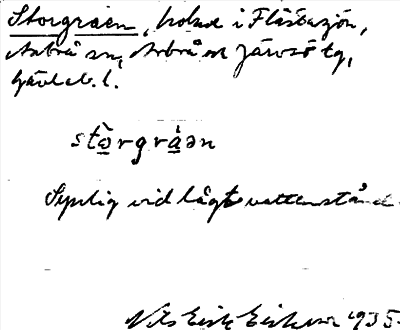 Storgråen, holme i Flästasjön,
Arbrå sn, Arbrå och Järvsö tg,
Gävleb. l.
stò̱rgrà̱ən
Synlig vid lågt vattenstånd.
Nils Erik Eriksson 1935.